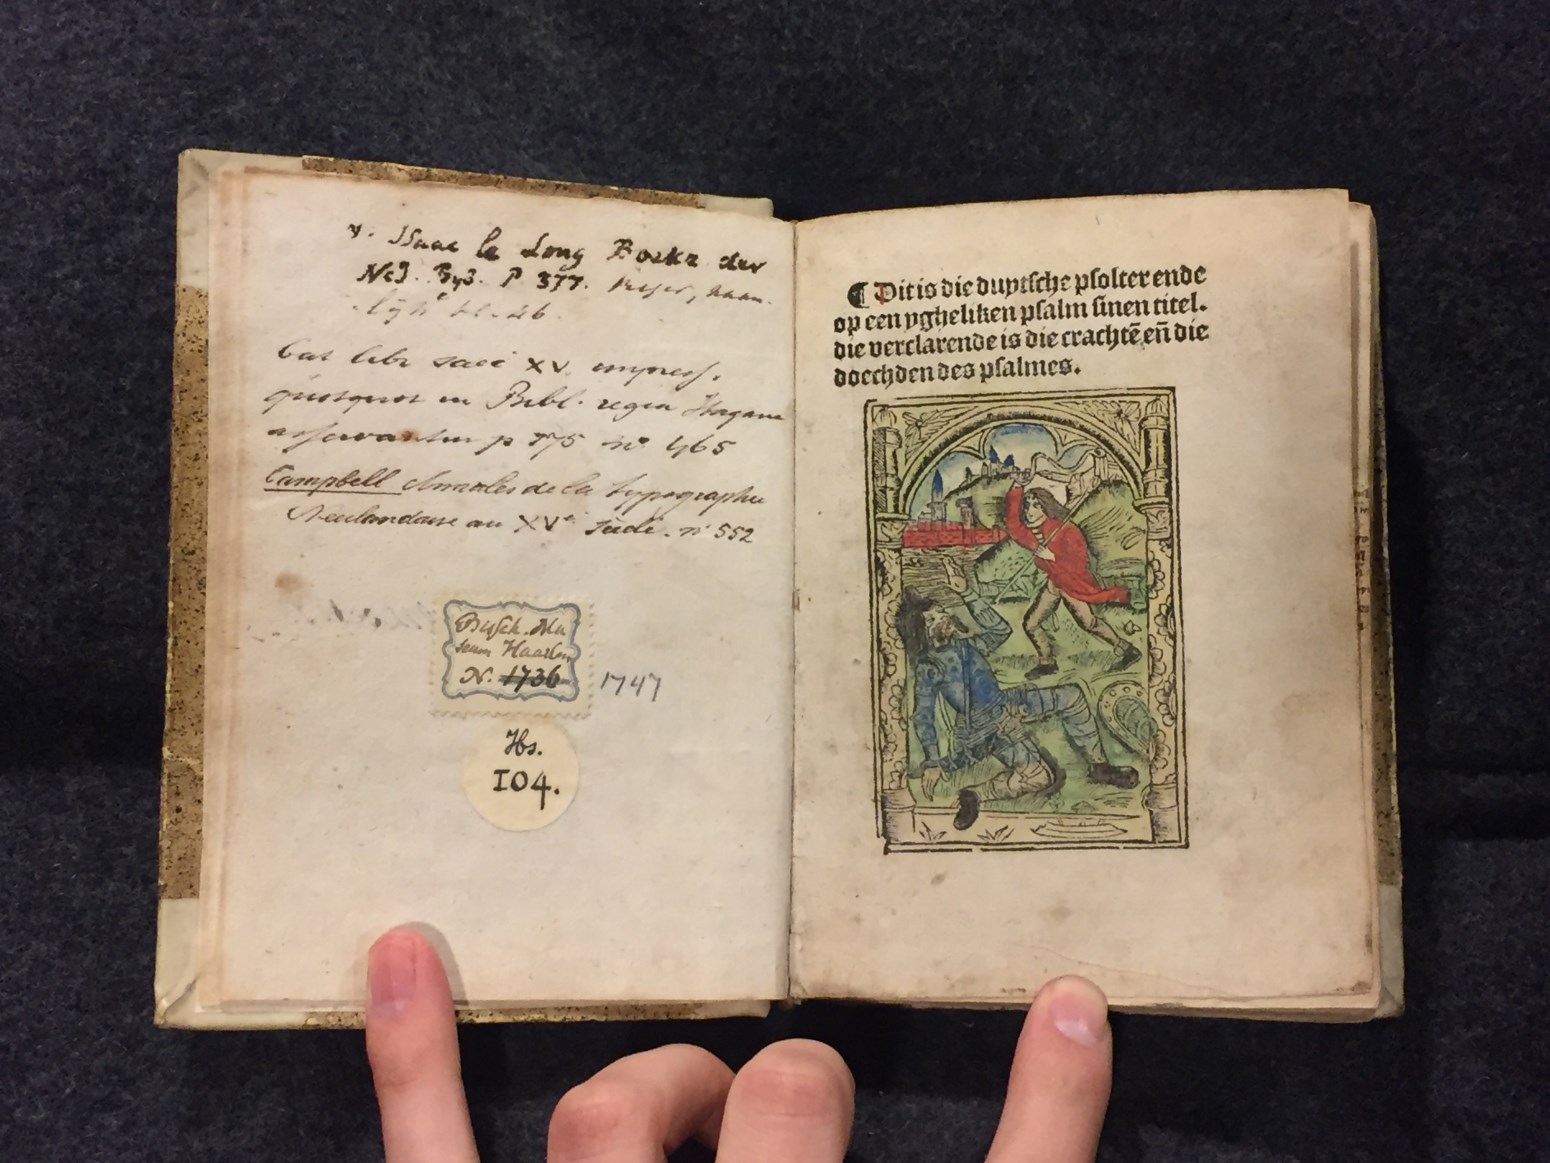 v. Isaac le Long Boekz der
Ned. Byb. P 377.
bl. 26.
Cat libr saec XV. impress.
quotquot in Bibl. regia Hagana
asservantur p 175 no 465
Campbell Annales de la typographie
Neerlandaise au XVe siècle. no 552
Bissch. Mu
seum Haarlem
N. 1736
1747
Hs.
104.
¶ Dit is die duytsche psolter ende
op een ygheliken psalm sinen titel.
die verclarende is die crachtē eñ die
doechden des psalmes.